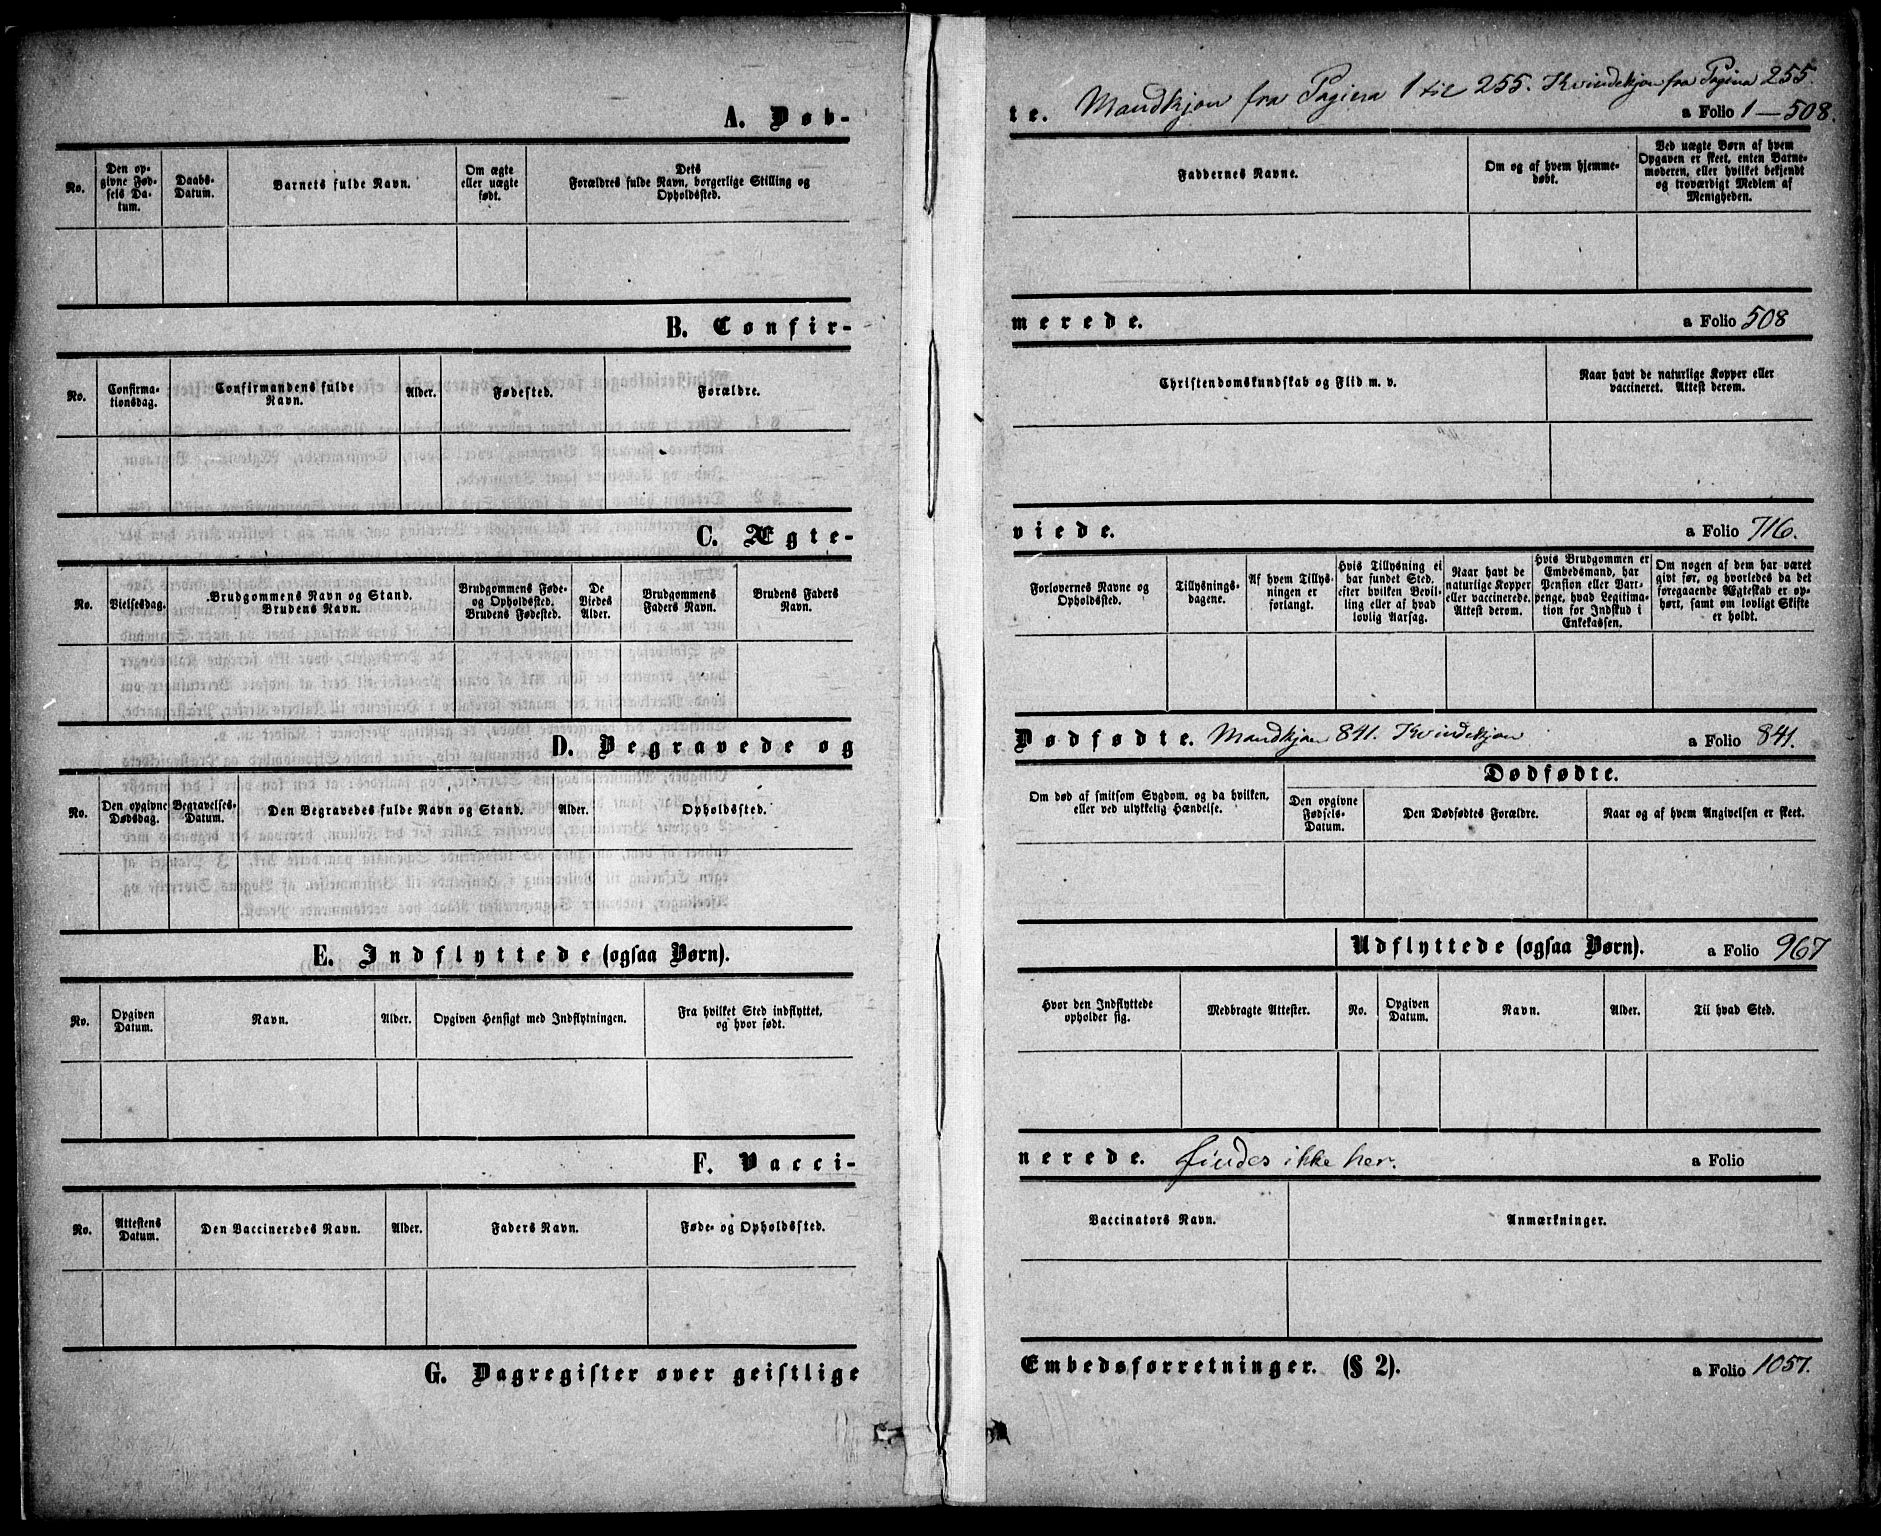 A. Døb-
No.
Den op-
givne Fød-
sels Da-
tum.
Daabs-
Datum.
Barnets fulde Navn.
Om ægte
eller uægte
født.
Dets
Forældres fulde Navn, borgerlige Stilling og
Opholdssted.
te. Mandkjøn fra Pagina 1 til 255. Kvindekjøn fra Pagina 255.
a Folio 1-508.
Faddernes Navne.
Om og af hvem hjemme-
døbt.
Ved uægte Børn af hvem
Opgaven er skeet, enten Barne-
moderen, eller hvilket bekjendt
og troværdigt Medlem af
Menigheden.
B. Confir-
No.
Confirma-
tionsdag.
Confirmandens fulde
Navn.
Alder.
Fødested.
Forældre.
merede.
a Folio 508
Christendomskundskab og Flid m. v.
Naar havt de naturlige Kopper eller
vaccineret. Attest derom.
C. Ægte-
No.
Vielsesdag.
Brudgommens Navn og Stand.
Brudens Navn.
Brudgommens Føde-
og Opholdssted.
Brudens Fødested.
De
Viedes
Alder.
Brudgommens
Faders Navn.
Brudens Faders
Navn.
viede.
a Folio 716.
Forlovernes Navne og
Opholdssted.
Tillysnings-
dagene.
Af hvem Tillys-
ningen er
forlangt.
Hvis Tillysning ei
har fundet Sted,
efter hvilken Bevil-
ling eller af hvad
lovlig Aarsag.
Naar havt de
naturlige Kopper
eller vaccinerede.
Attest derom.
Hvis Brudgommen er
Embedsmand, har
Pension eller Vart-
penge, hvad Legitima-
tion for Indskud i
Enkekassen.
Om nogen af dem har været
gift før, og hvorledes da det
foregaaende Ægteskab er op-
hørt, samt om lovligt Skifte
er holdt.
D. Begravede og
No.
Den opgivne
Dødsdag.
Begravelses-
Datum.
Den Begravedes fulde Navn og Stand.
Alder.
Opholdssted.
Dødfødte. Mandkjøn 841. Kvindekjøn
a Folio 841.
Om død af smitsom Sygdom, og da hvilken,
eller ved ulykkelig Hændelse.
Dødfødte.
Den opgivne
Fødsels-
Datum.
Den Dødfødtes Forældre.
Naar og af hvem Angivelsen er skeet.
E. Indflyttede (ogsaa Børn).
No.
Opgiven
Datum.
Navn.
Alder.
Opgiven Hensigt med Indflytningen.
Fra hvilket Sted indflyttet,
og hvor født.
Udflyttede (ogsaa Børn).
a Folio 967
Hvor den Indflyttede
opholder sig.
Medbragte Attester.
No.
Opgiven
Datum.
Navn.
Alder.
Til hvad Sted.
F. Vacci-
No.
Attestens
Datum.
Den Vaccineredes Navn.
Alder.
Faders Navn.
Føde- og Opholdssted.
nerede. findes ikke her.
a Folio
Vaccinators Navn.
Anmærkninger.
G. Dagregister over geistlige
Embedsforretninger. (§ 2).
a Folio 1057.